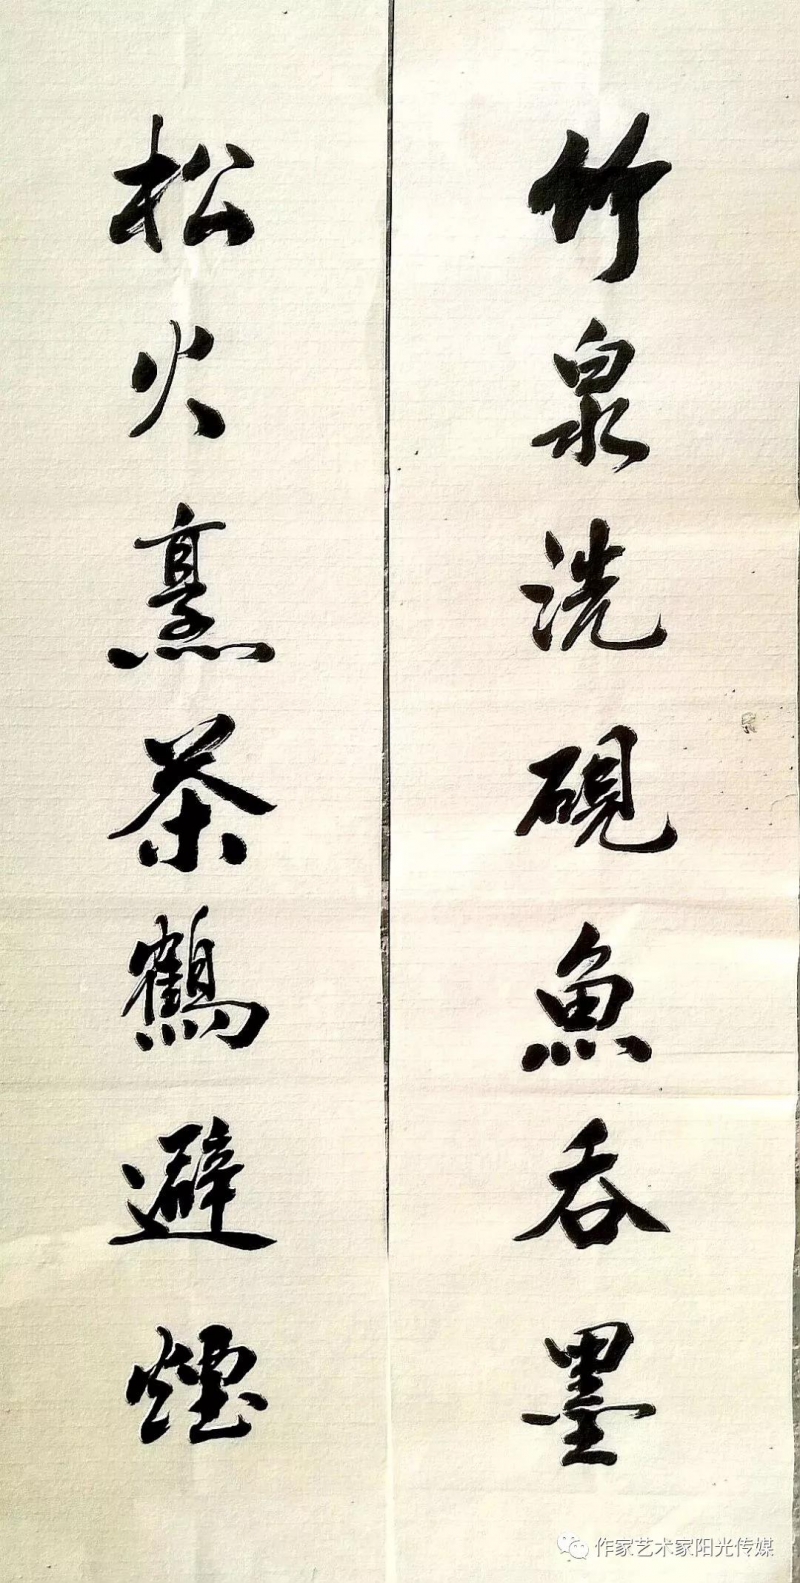 竹泉洗硯魚吞墨
松火烹茶鶴避煙
作家艺术家阳光传媒